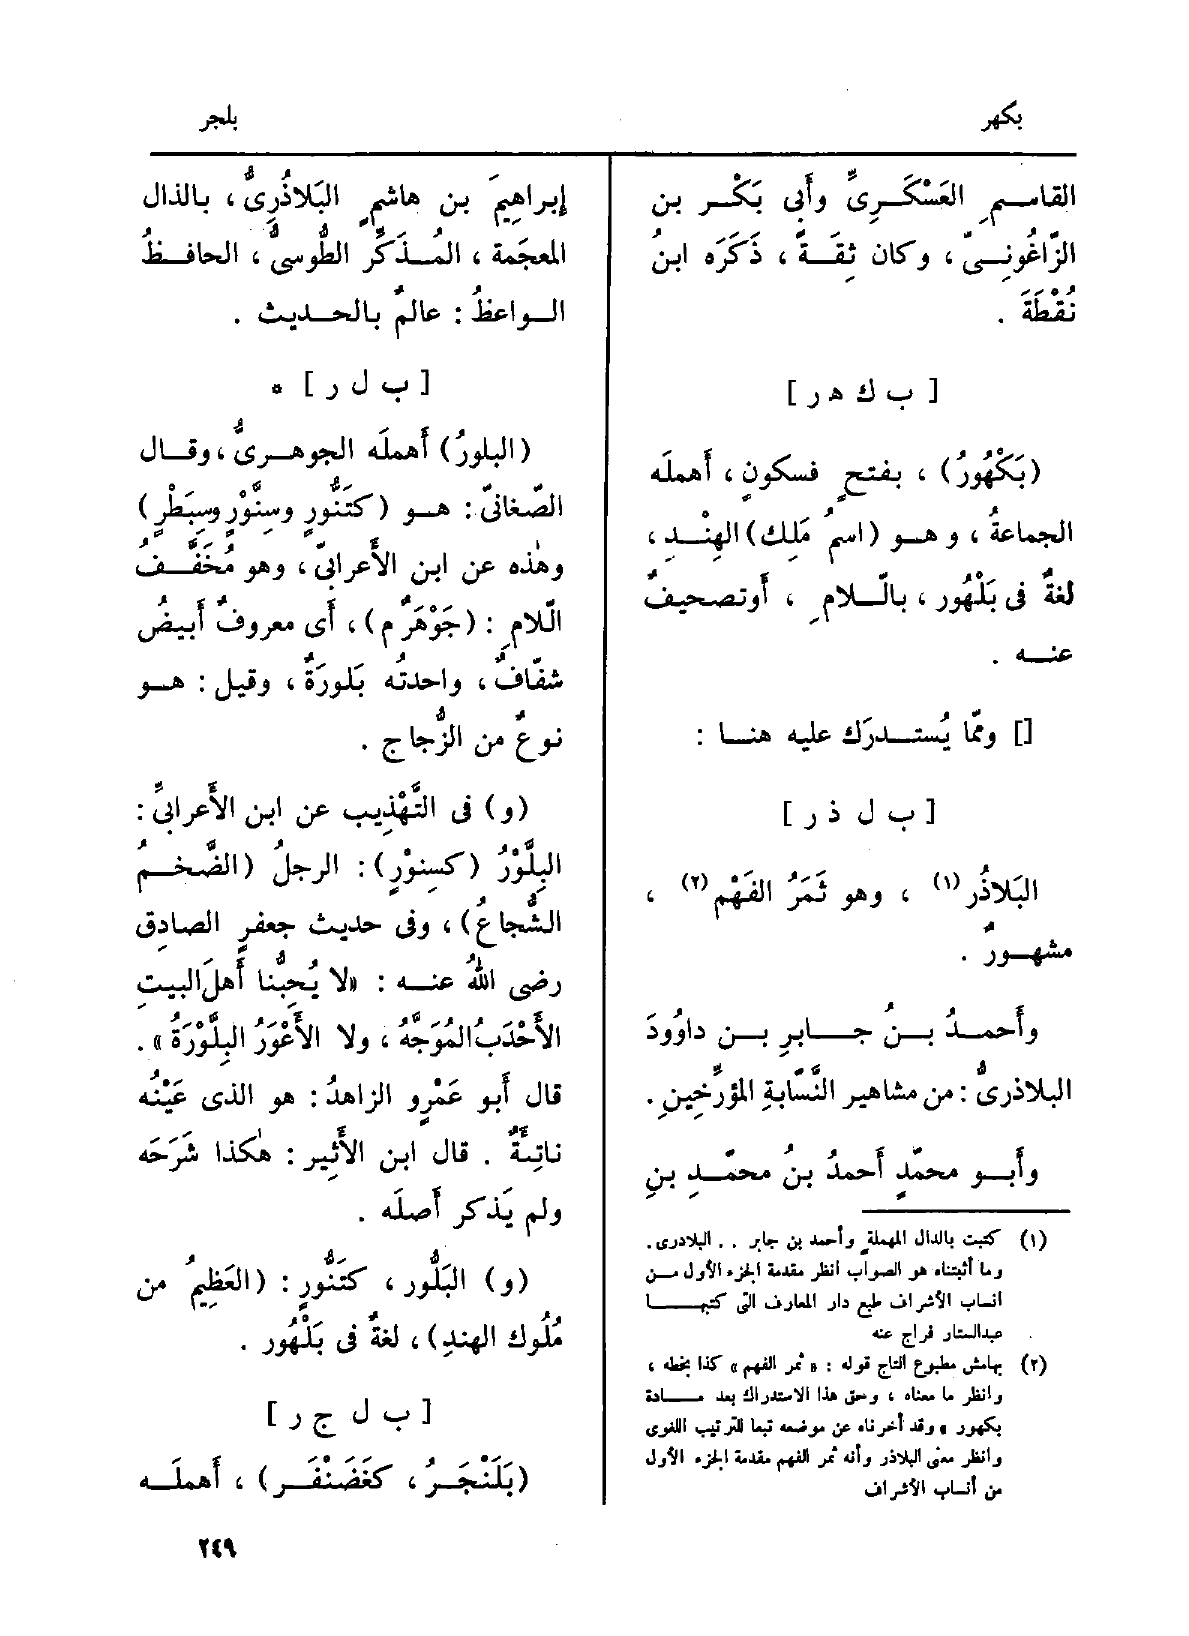 بكهر
بلجر
القاسمِ العَسْكَرِىِّ وأَبى بَكْر بن
الزّاغُونِىّ ، وكان ثِقَةً ، ذَكَرَه ابنُ
نُقْطَةَ .
[ ب ك هـ ر ]
(بَكْهُورُ) ، بفتحٍ فسكونٍ ، أَهمله
الجماعةُ ، وهو (اسمُ مَلِك) الهِنْدِ ،
لغةٌ فى بَلْهُور ، بالّلامِ ، أَو تصحيفٌ
عنه .
[] وممّا يُستدرَك عليه هنا :
[ ب ل ذ ر ]
البَلاذُر (١) ، وهو ثَمَرُ الفَهْمِ (٢) ،
مشهورٌ .
وأَحمدُ بنُ جابرِ بن داوُودَ
البلاذرىُّ : من مشاهير النَّسّابةِ المؤرِّخينِ .
وأَبو محمّدٍ أَحمدُ بنُ محمّدِ بنِ
(١) كتبت بالدال المهملة وأحمد بن جابر . . البلادرى .
وما أثبتناه هو الصواب انظر مقدمة الجزء الأول من
انساب الأشراف طبع دار المعارف التى كتبها
عبدالستار فراج عنه
(٢) بهامش مطبوع التاج قوله : « ثمر الفهم » كذا بخطه ،
وانظر ما معناه ، وحق هذا الاستدراك بعد مادة
بكهور » وقد أخرناه عن موضعه تبعا للترتيب اللغوى
وانظر معنى البلاذر وأنه ثمر الفهم مقدمة الجزء الأول
من أنساب الأشراف
إبراهِيمَ بن هاشمٍ البَلاذُرِىُّ ، بالذال
المعجَمة ، المُذكِّر الطُّوسىُّ ، الحافظُ
الواعظُ : عالمٌ بالحديث .
[ ب ل ر ] *
(البلورُ) أَهملَه الجوهرىُّ ، وقال
الصّغانىّ : هو (كتَنُّورٍ وسِنَّوْرٍ وسِبَطْرٍ)
وهٰذه عن ابن الأَعرابىّ ، وهو مُخَفَّفُ
الّلامِ : (جَوْهَرٌ م) ، أَى معروفٌ أَبيضُ
شفّافٌ ، واحدتُه بَلورَةٌ ، وقيل : هو
نوعٌ من الزُّجاج .
(و) فى التَّهْذِيب عن ابن الأَعرابىِّ :
البِلَّوْرُ (كسِنوْرٍ) : الرجلُ (الضَّخمُ
الشُّجاعُ) ، وفى حديث جعفرٍ الصادِق
رضى اللهُ عنه : «لا يُحِبُّنا أَهلَ البيتِ
الأَحْدَبُ المُوَجَّهُ ، ولا الأَعْوَرُ البِلَّوْرَةُ » .
قال أَبو عَمْرٍو الزاهدُ : هو الذى عَيْنُه
ناتِئَةٌ . قال ابن الأَثيرِ : هٰكذا شَرَحَه
ولم يَذكر أَصلَه .
(و) البَلُّور ، كتَنُّورٍ : (العَظِيمُ من
مُلُوك الهندِ) ، لغةٌ فى بَلْهُور .
[ ب ل ج ر ]
(بَلَنْجَرُ ، كغَضَنْفَر) ، أَهملَه
٢٤٩